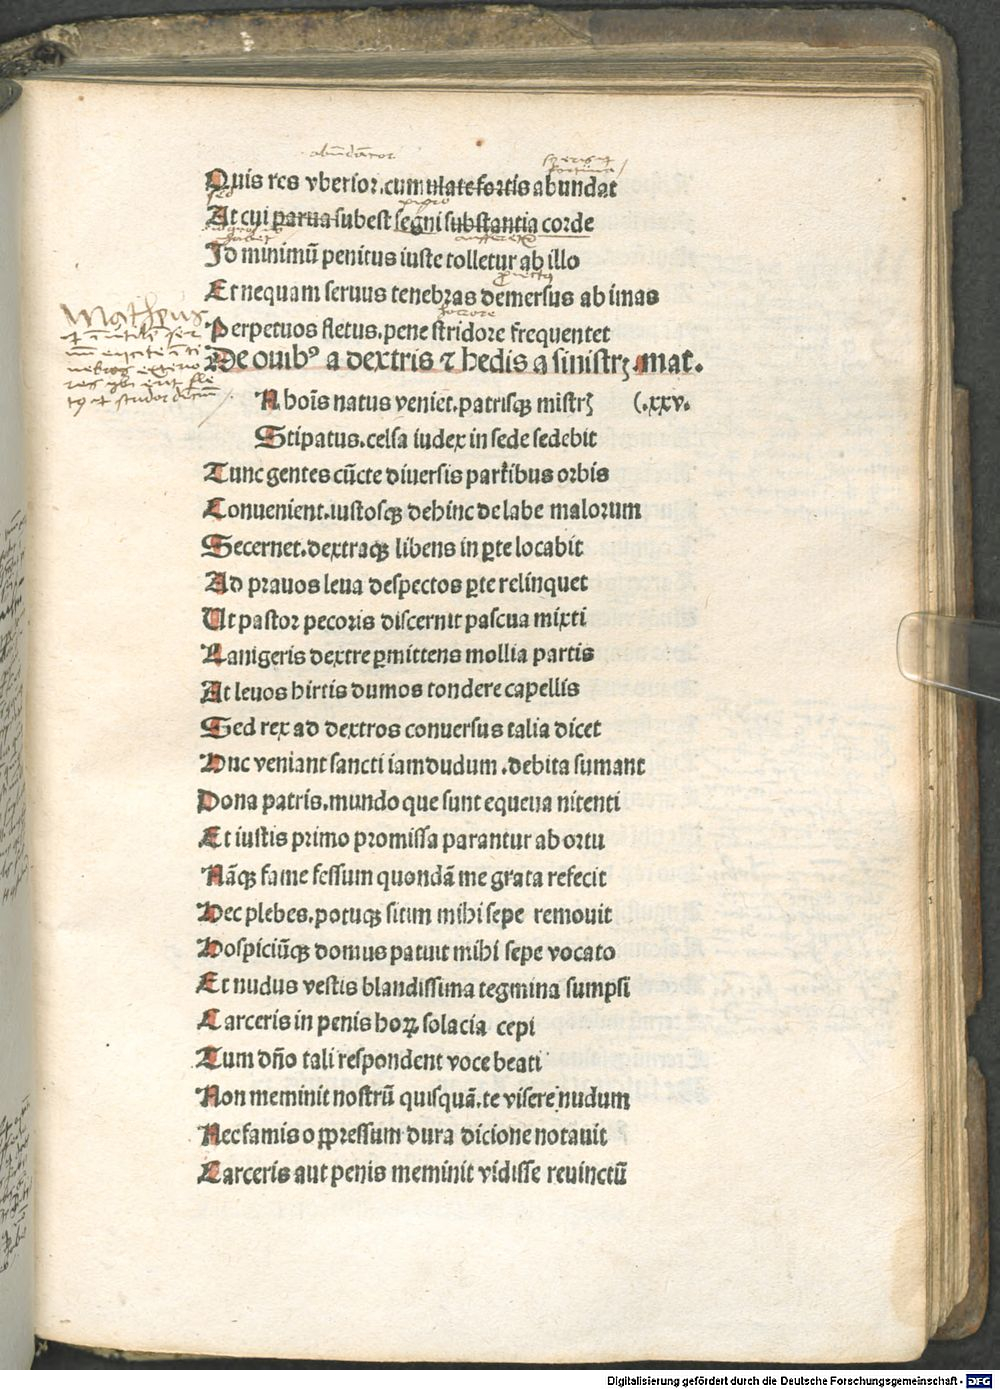 abundātior
Quis res vberior.cumulate fortis abundat
sed
At cui parua subest segni substantia corde
pigro
Id minimū penitus iuste tolletur ab illo
auffertur
Et nequam seruus tenebras demersus ab imas
Perpetuos fletus.pene stridore frequentet
De ouibꝰ a dextris ⁊ hedis a sinistrꝭ.mat.
(.xxv.
Matheus
A bois natus veniet.patrisqꝫ mīstrꝭ
Stipatus.celsa iudex in sede sedebit
Tunc gentes cūcte diuersis partibus orbis
Conuenient.iustosqꝫ dehinc de labe malorum
Secernet.dextraqꝫ libens in ꝑte locabit
Ad prauos leua despectos ꝑte relinquet
Ut pastor pecoris discernit pascua mixti
Lanigeris dextre ꝑmittens mollia partis
At leuos hirtis dumos tondere capellis
Sed rex ad dextros conuersus talia dicet
Huc veniant sancti iamdudum.debita sumant
Dona patris.mundo que sunt equeua nitenti
Et iustis primo promissa parantur ab ortu
Nāqꝫ fame fessum quondā me grata refecit
Hec plebes.potuqꝫ sitim mihi sepe remouit
Hospiciūqꝫ domus patuit mihi sepe vocato
Et nudus vestis blandissima tegmina sumpsi
Carceris in penis hoꝝ solacia cepi
Tum dn̄o tali respondent voce beati
Non meminit nostrū quisquā.te visere nudum
Nec famis oppressum dura dicione notauit
Carceris aut penis meminit vidisse reuinctū
Digitalisierung gefördert durch die Deutsche Forschungsgemeinschaft - DFG